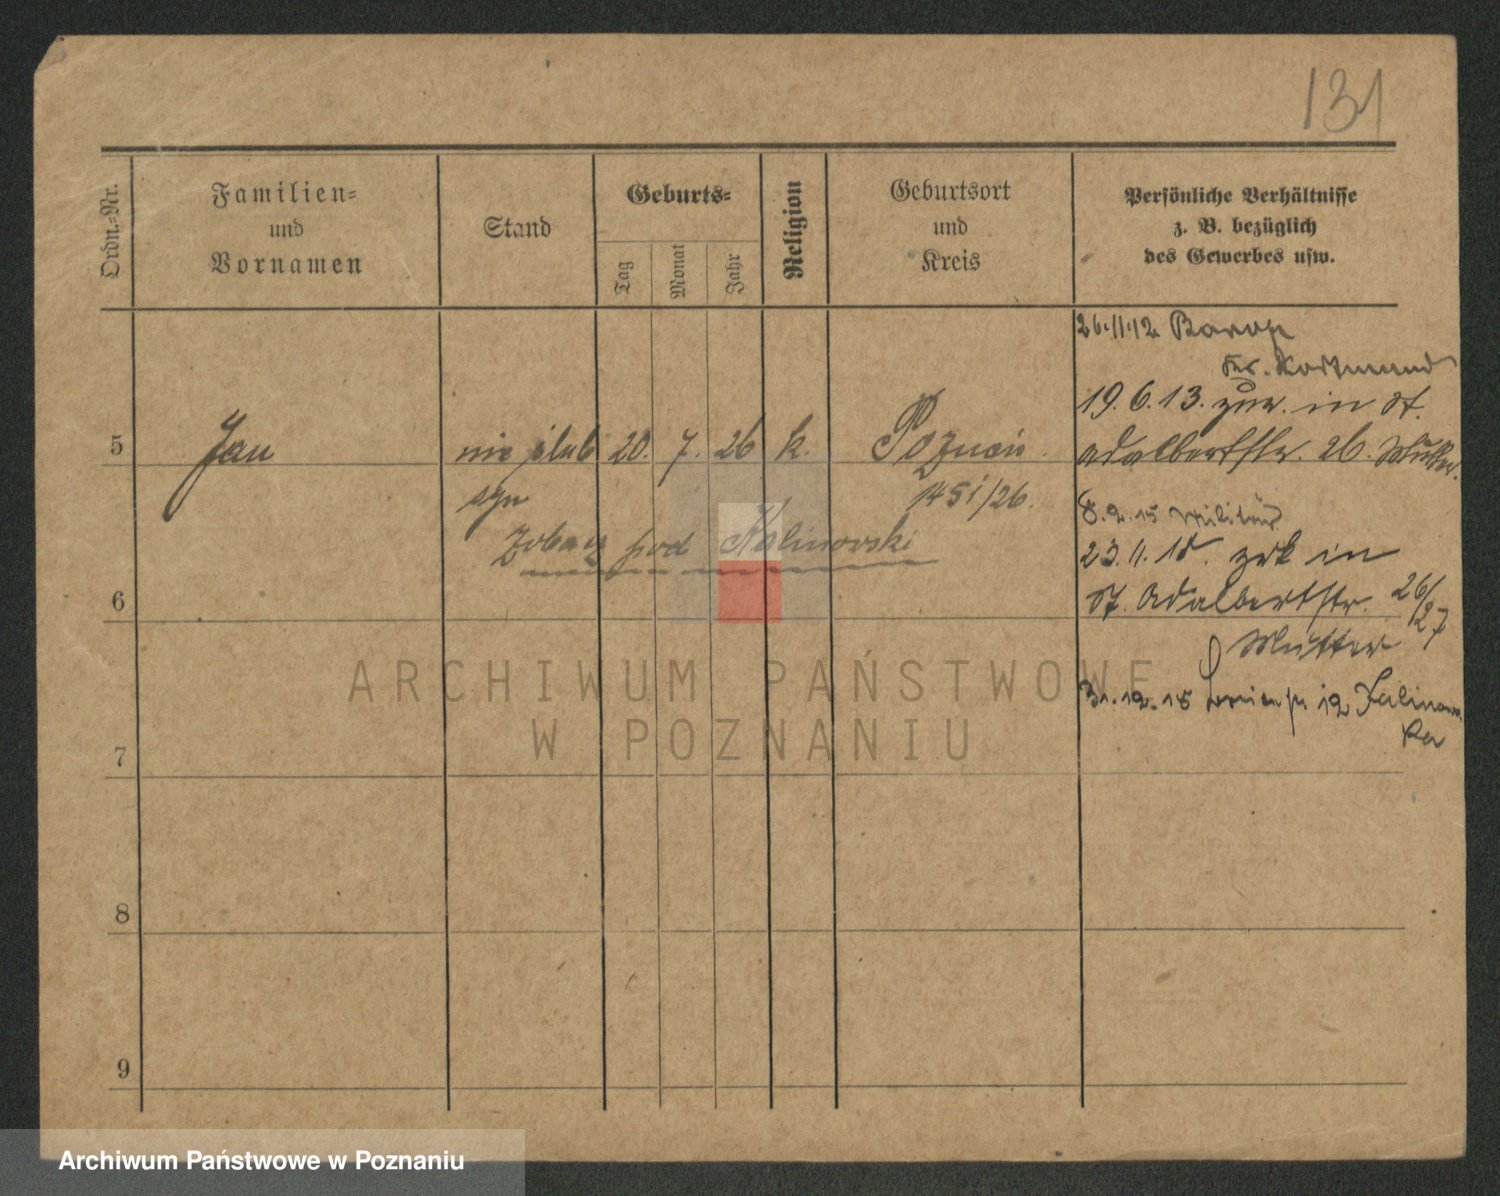 131
Ordn.=Nr.
Familien=
und
Vornamen
Stand
Geburts=
Tag
Monat
Jahr
Religion
Geburtsort
und
Kreis
Persönliche Verhältnisse
z. B. bezüglich
des Gewerbes usw.
26.11.12 Barop
Kr. Dortmund
19.6.13. zur. in St.
5 Jan nie ślub 20. 7. 26 k. Poznań
Adalbertstr. 26. Mutter.
syn 1451/26.
8.2.15 Militär
Zobacz pod Kalinowski
23.11.18. zrk in
6
St. Adalbertstr. 26/27
Mutter
31.12.18 12
7
8
9
ARCHIWUM PAŃSTWOWE
W POZNANIU
Archiwum Państwowe w Poznaniu